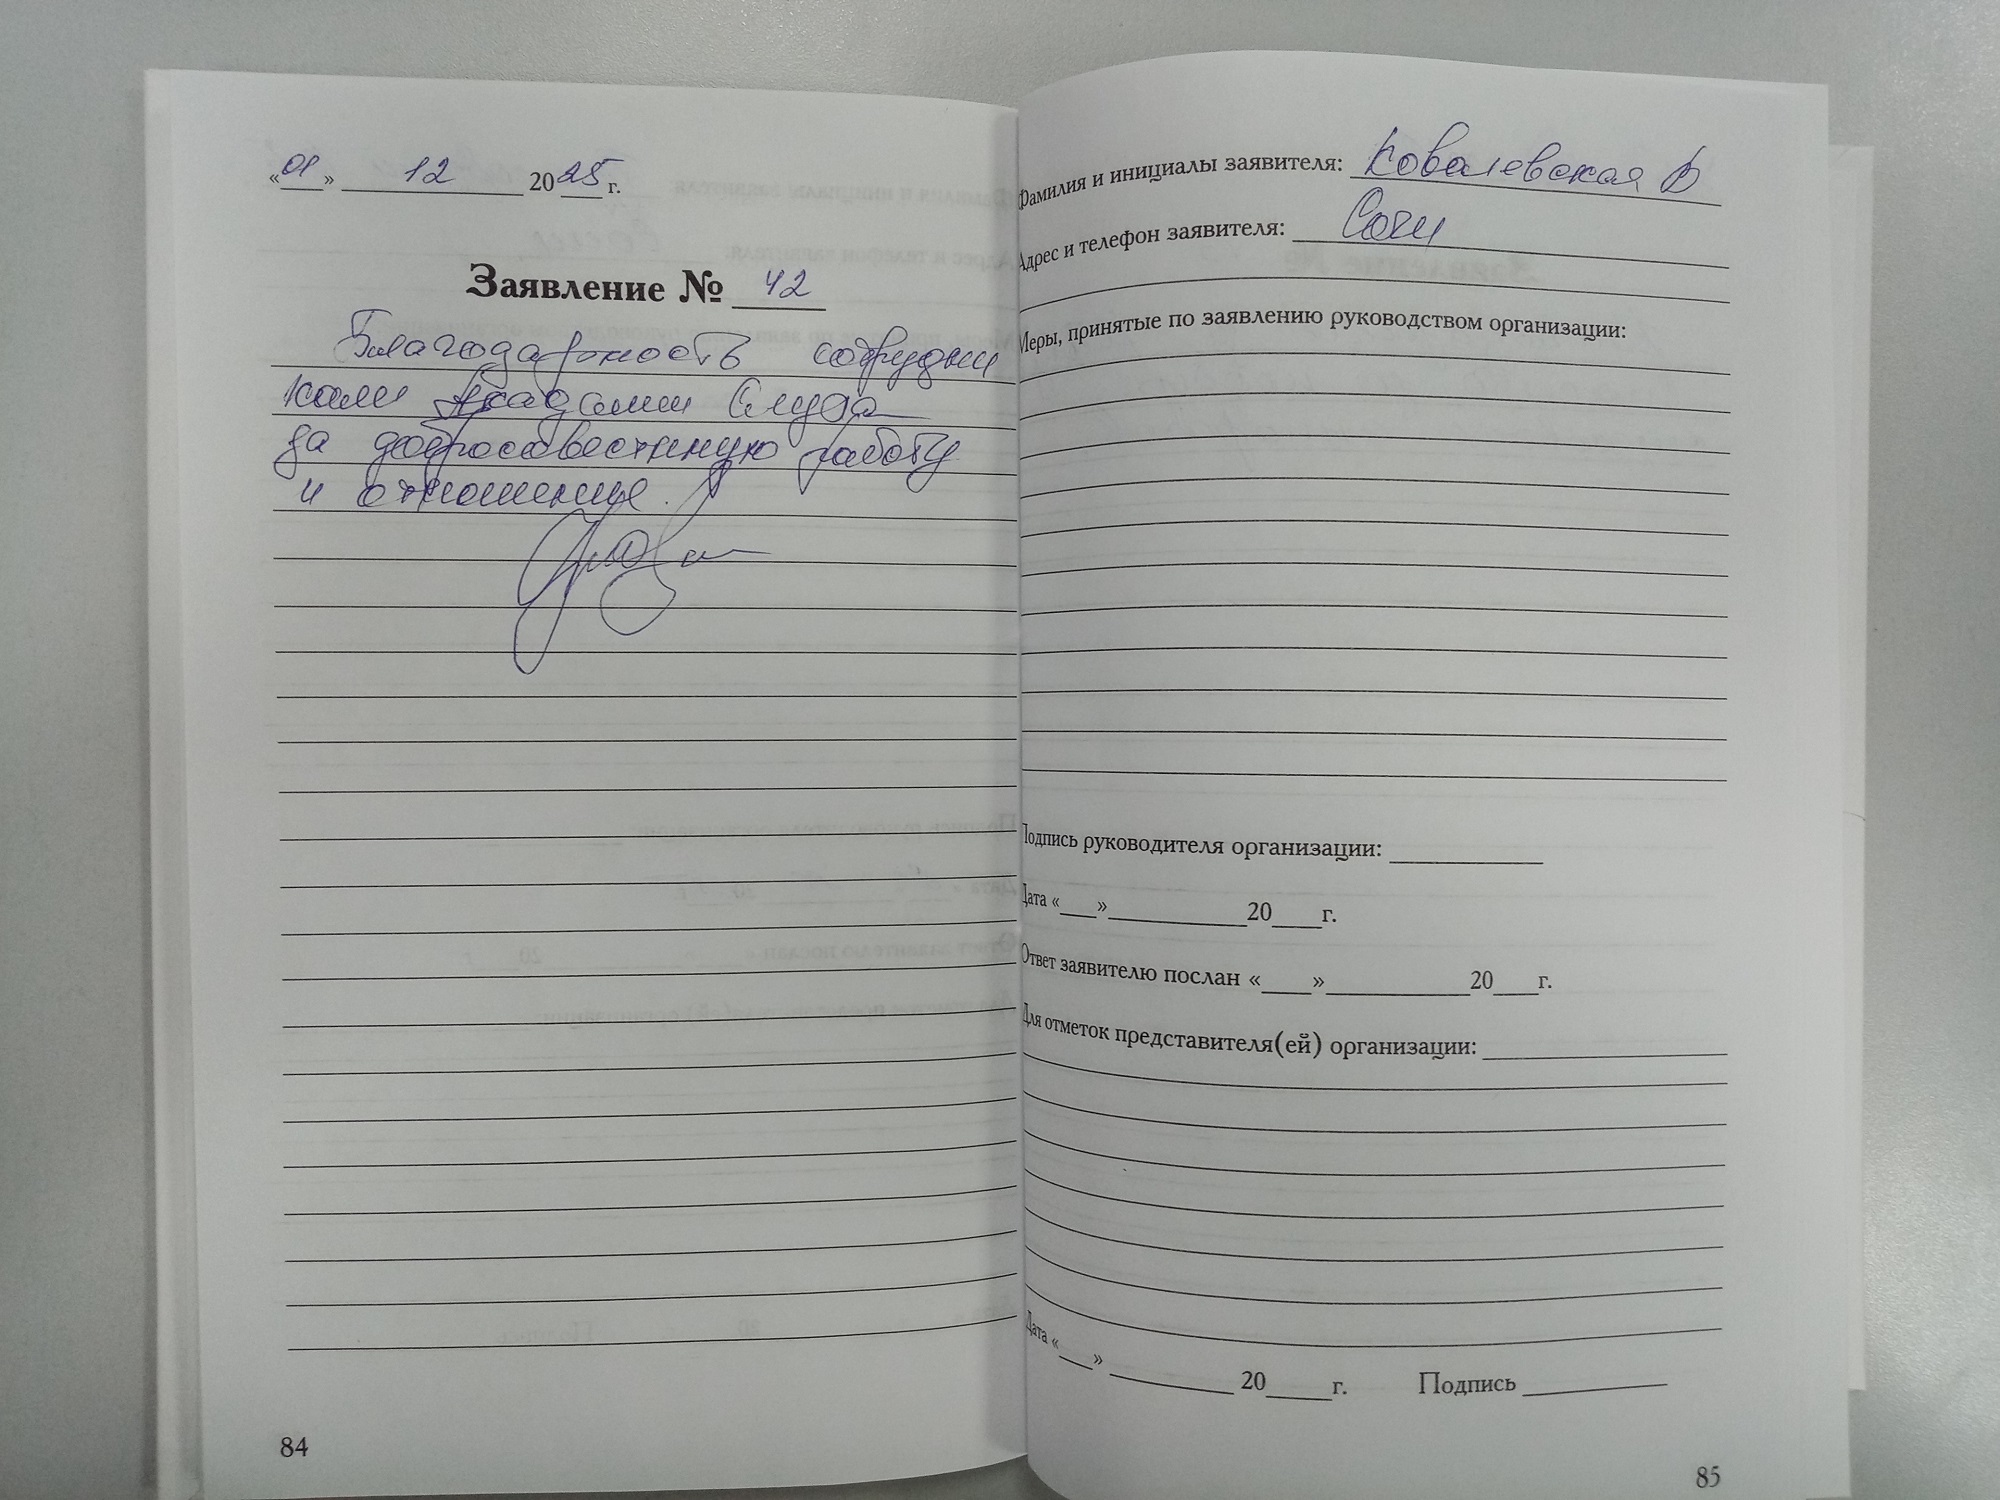 «01» 12 2025 г.
Заявление № 42
Благодарность сотрудни
ками Академии Слуха
за добросовестную работу
и отношение.
84
Фамилия и инициалы заявителя: Ковалевская В
Адрес и телефон заявителя: Сочи
Меры, принятые по заявлению руководством организации:
Подпись руководителя организации:
Дата «___» 20___г.
Ответ заявителю послан «___» 20___г.
Для отметок представителя(ей) организации:
Дата «___» 20___г. Подпись
85